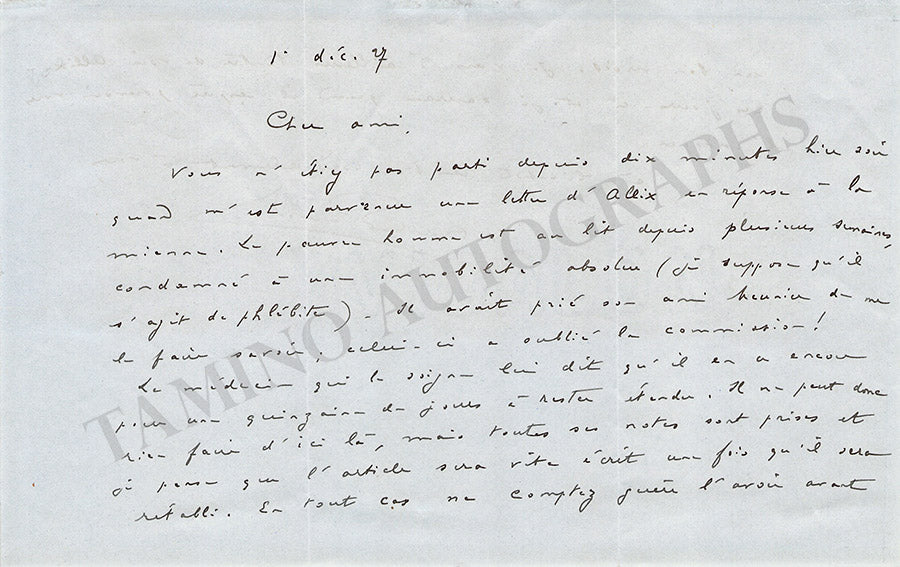 1er déc. 27
Cher ami,
Vous n'étiez pas parti depuis dix minutes hier soir
quand m'est parvenue une lettre d'Allix en réponse à la
mienne. Le pauvre homme est au lit depuis plusieurs semaines,
condamné à une immobilité absolue (je suppose qu'il
s'agit de phlébite). Il avait prié son ami Meunier de me
le faire savoir; celui-ci a oublié la commission!
Le médecin qui le soigne lui dit qu'il en a encore
pour une quinzaine de jours à rester étendu. Il ne peut donc
rien faire d'ici là, mais toutes ses notes sont prises et
je pense que l'article sera vite écrit une fois qu'il sera
rétabli. En tout cas ne comptez guère l'avoir avant
TAMINO AUTOGRAPHS